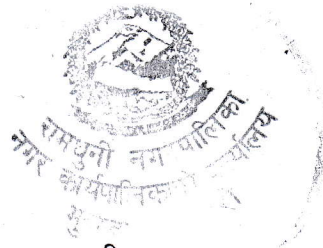 रामधुनी नगरपालिका
नगर कार्यपालिकाको कार्यालय